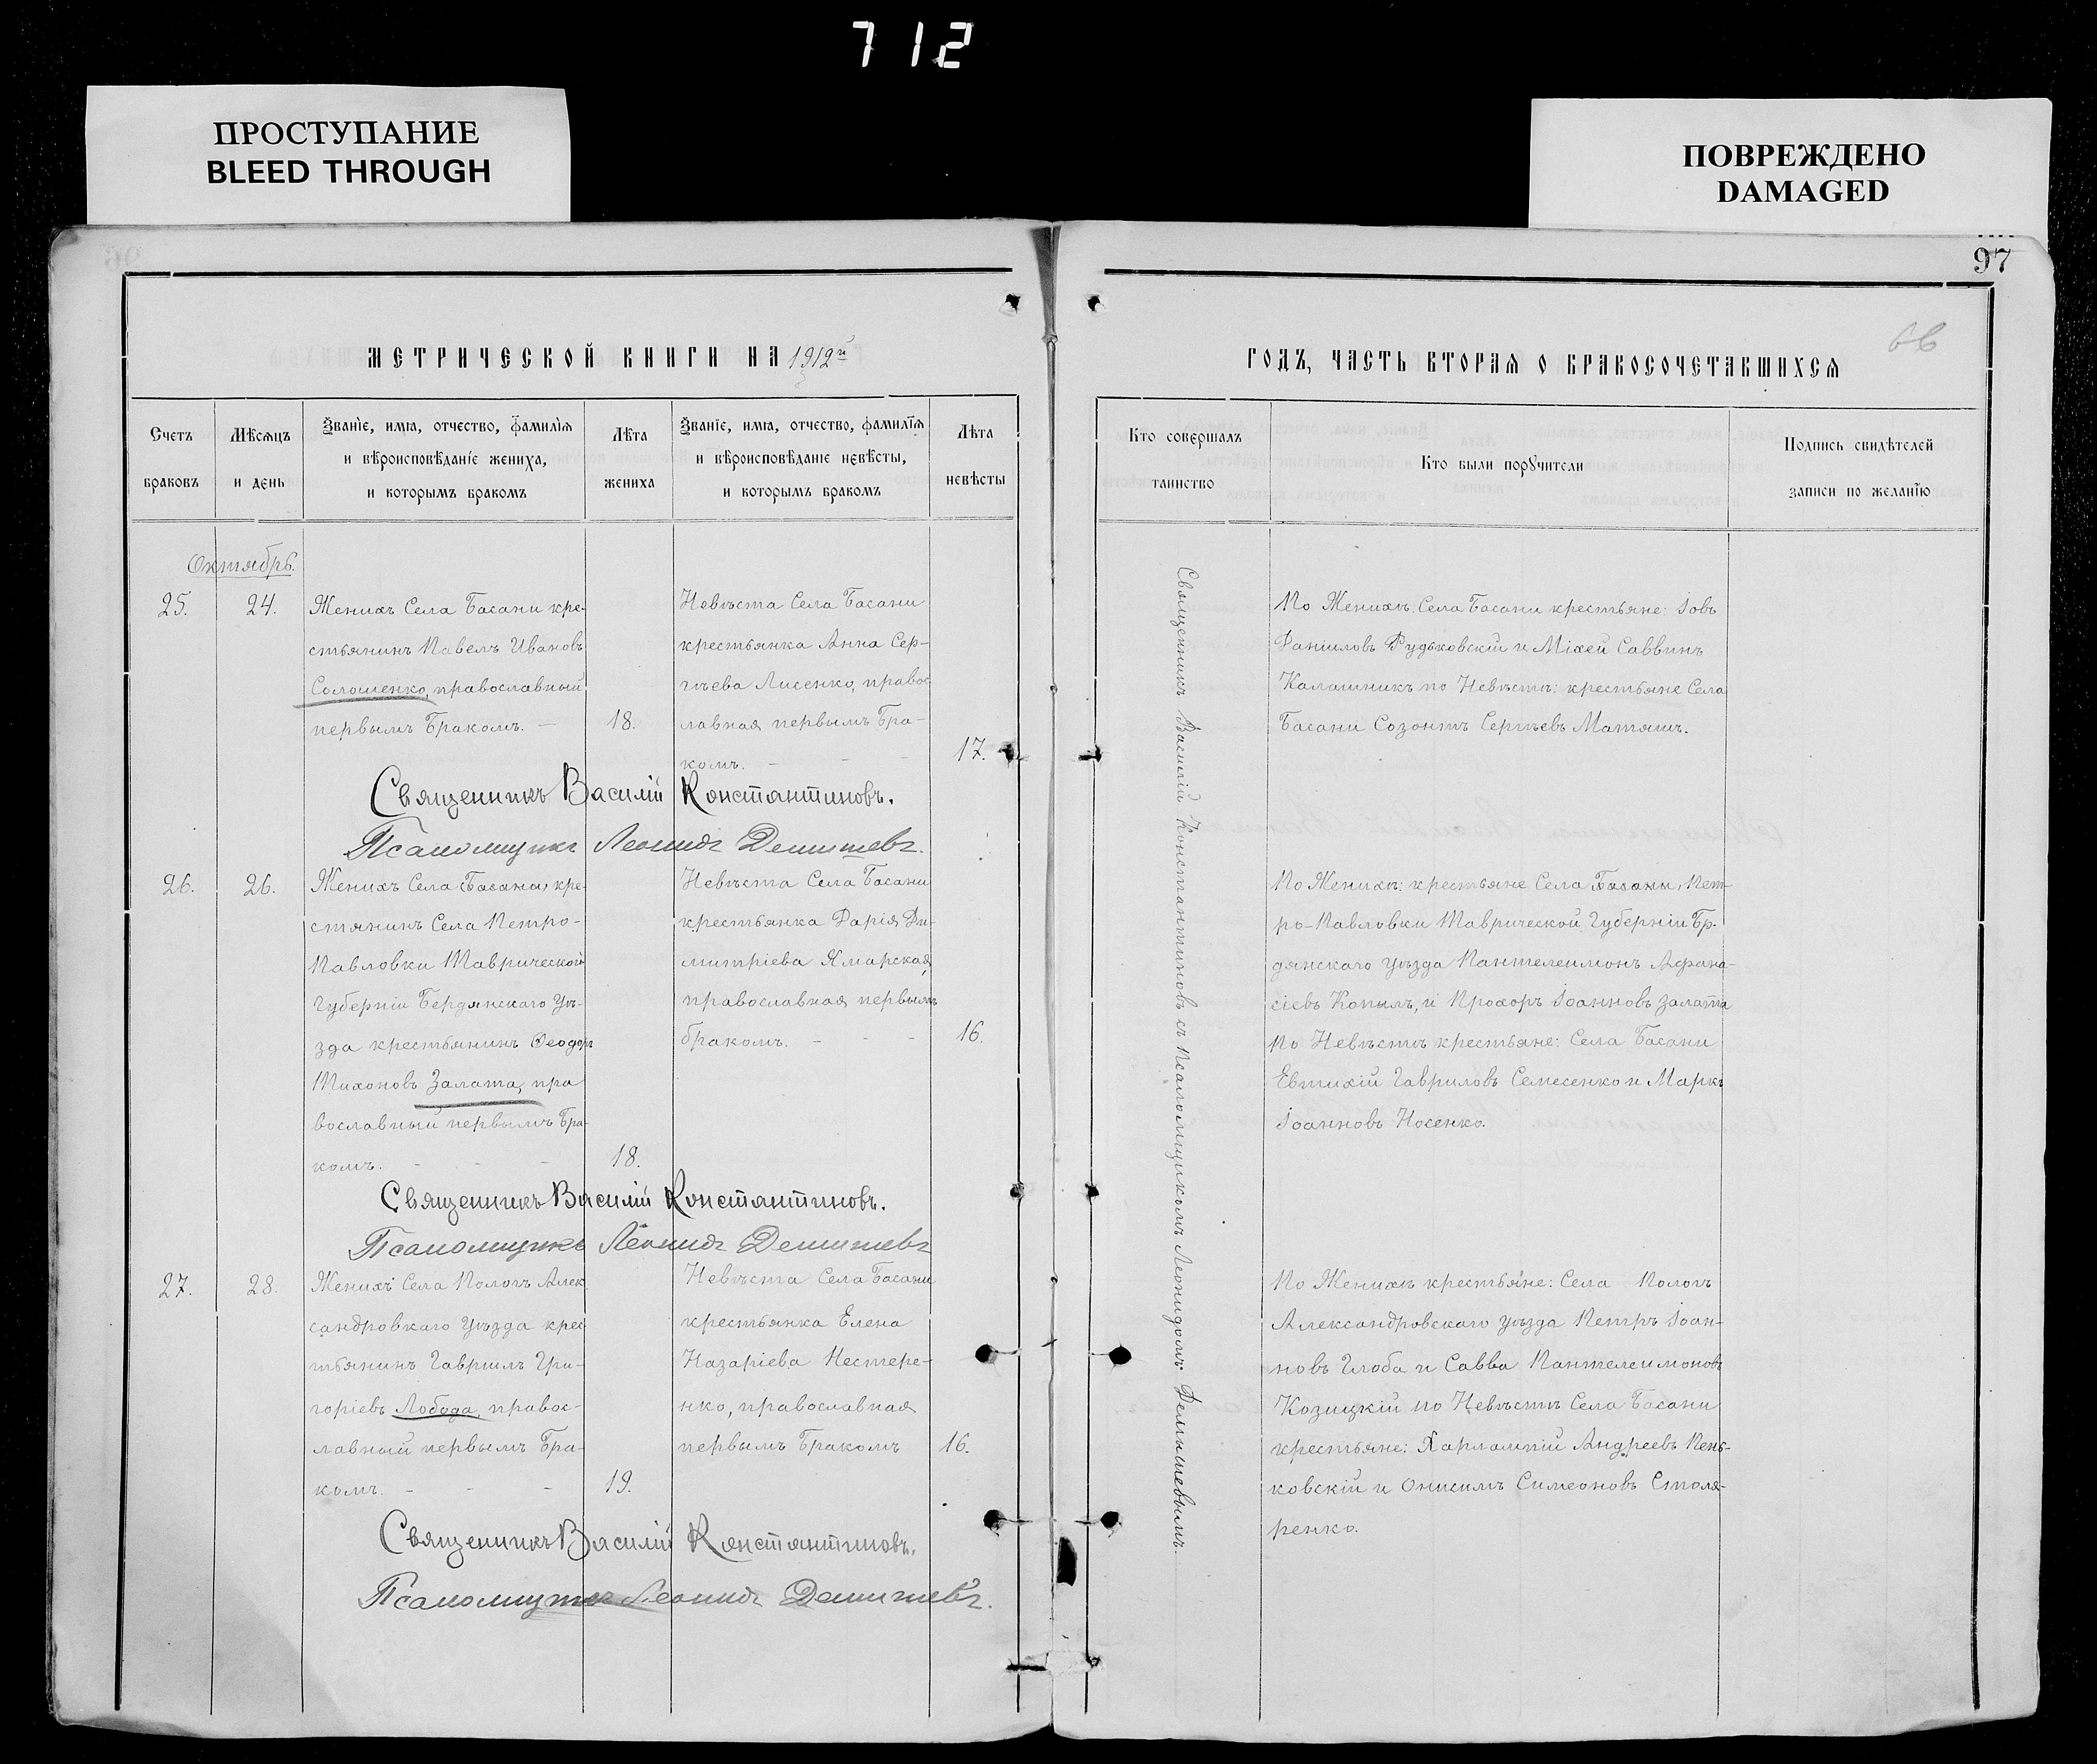 712
ПРОСТУПАНИЕ
BLEED THROUGH
ПОВРЕЖДЕНО
DAMAGED
97
66
МЕТРИЧЕСКОЙ КНИГИ НА 1912й
ГОДЪ, ЧАСТЬ ВТОРАЯ О БРАКОСОЧЕТАВШИХСЯ
Счетъ
браковъ
Мѣсяцъ
и день
Званіе, имя, отчество, фамилія
и вѣроисповѣданіе жениха,
и которымъ бракомъ
Лѣта
жениха
Званіе, имя, отчество, фамилія
и вѣроисповѣданіе невѣсты,
и которымъ бракомъ
Лѣта
невѣсты
Кто совершалъ
таинство
Кто были поручители
Подпись свидѣтелей
записи по желанію
Октябрь.
25.
24.
Женихъ Села Басани кре-
стьянинъ Павелъ Ивановъ
Солошенко, православный
первымъ бракомъ. —
18.
Невѣста Села Басани
крестьянка Анна Сер-
гѣева Лисенко, правос
лавная первымъ бра-
комъ. - - -
17.
По Женихѣ: Села Басани крестьяне: Іовъ
Даніиловъ Рудьковскій и Міхей Саввинъ
Калашникъ по Невѣстѣ: крестьяне Села
Басани Созонтъ Сергѣевъ Матяшъ.
Священникъ Василій Константиновъ.
Псаломщикъ Леонидъ Демишевъ.
26.
26.
Женихъ Села Басани кре-
стянинъ Села Петро-
Павловки Таврической
Губерніи Бердянскаго Уѣ-
зда крестьянинъ Ѳеодоръ
Тихоновъ Залата, пра
вославный первымъ бра-
комъ. - - -
18.
Невѣста Села Басани
крестьянка Дарія Ди-
митріева Ямарская,
православная первымъ
бракомъ. - - -
16.
По Женихѣ: крестьяне Села Басани, Пет-
ро-Павловки Таврической Губерніи Бр.
дянскаго уѣзда Пантелеимонъ Афана-
сіевъ Копылъ, и Прохоръ Іоанновъ Залата
по Невѣстѣ крестьяне: Села Басани
Евтихій Гавриловъ Семесенко и Маркъ
Іоанновъ Носенко.
Священникъ Василій Константиновъ.
Псаломщикъ Леонидъ Демишевъ
27.
28.
Женихъ Села Пологъ Алек
сандровкаго Уѣзда крес
тьянинъ Гавриилъ Гри-
горіевъ Лобода, правос-
лавный первымъ бра-
комъ. - - -
19.
Невѣста Села Басани
крестьянка Елена
Назаріева Нестере-
нко, православная
первымъ бракомъ
16.
По Женихѣ крестьяне: Села Пологъ
Александровскаго уѣзда Петръ Іоан-
новъ Глоба и Савва Пантелеимоновъ
Козицкій по Невѣстѣ Села Басани
крестьяне: Харлампій Андреевъ Пень-
ковскій и Онисимъ Симеоновъ Столя-
ренко.
Священникъ Василій Константиновъ.
Псаломщикъ Леонидъ Демишевъ.
Священникъ Василій Константиновъ съ Псаломщикомъ Леонидомъ Демишевымъ.